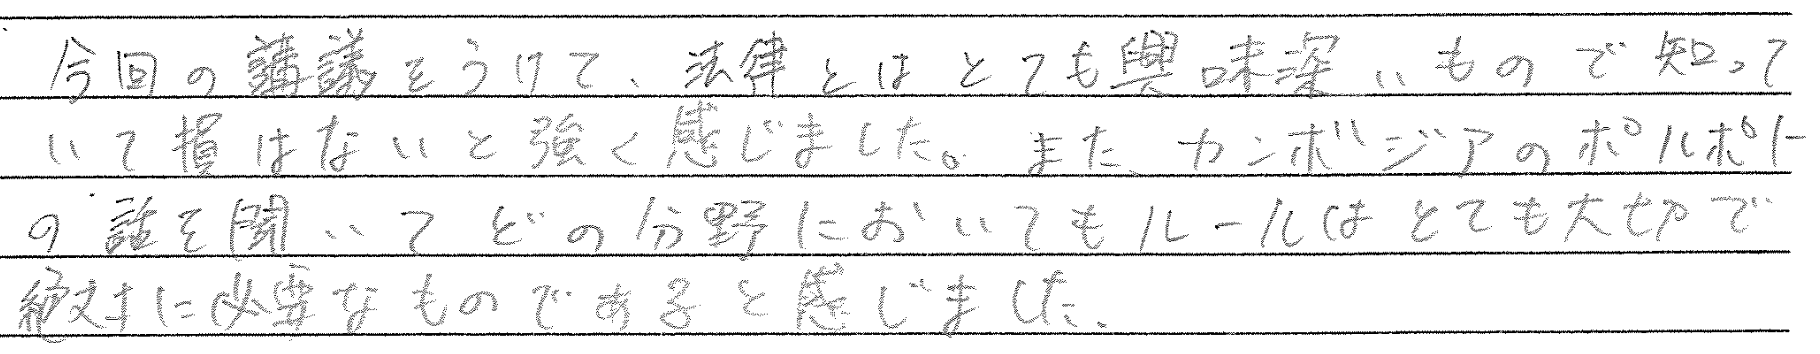 今回の講議をうけて、法律とはとても興味深いもので知って
いて損はないと強く感じました。また、カンボジアのポルポト
の話を聞いてどの分野においてもルールはとても大切で
絶対に必要なものであると感じました。